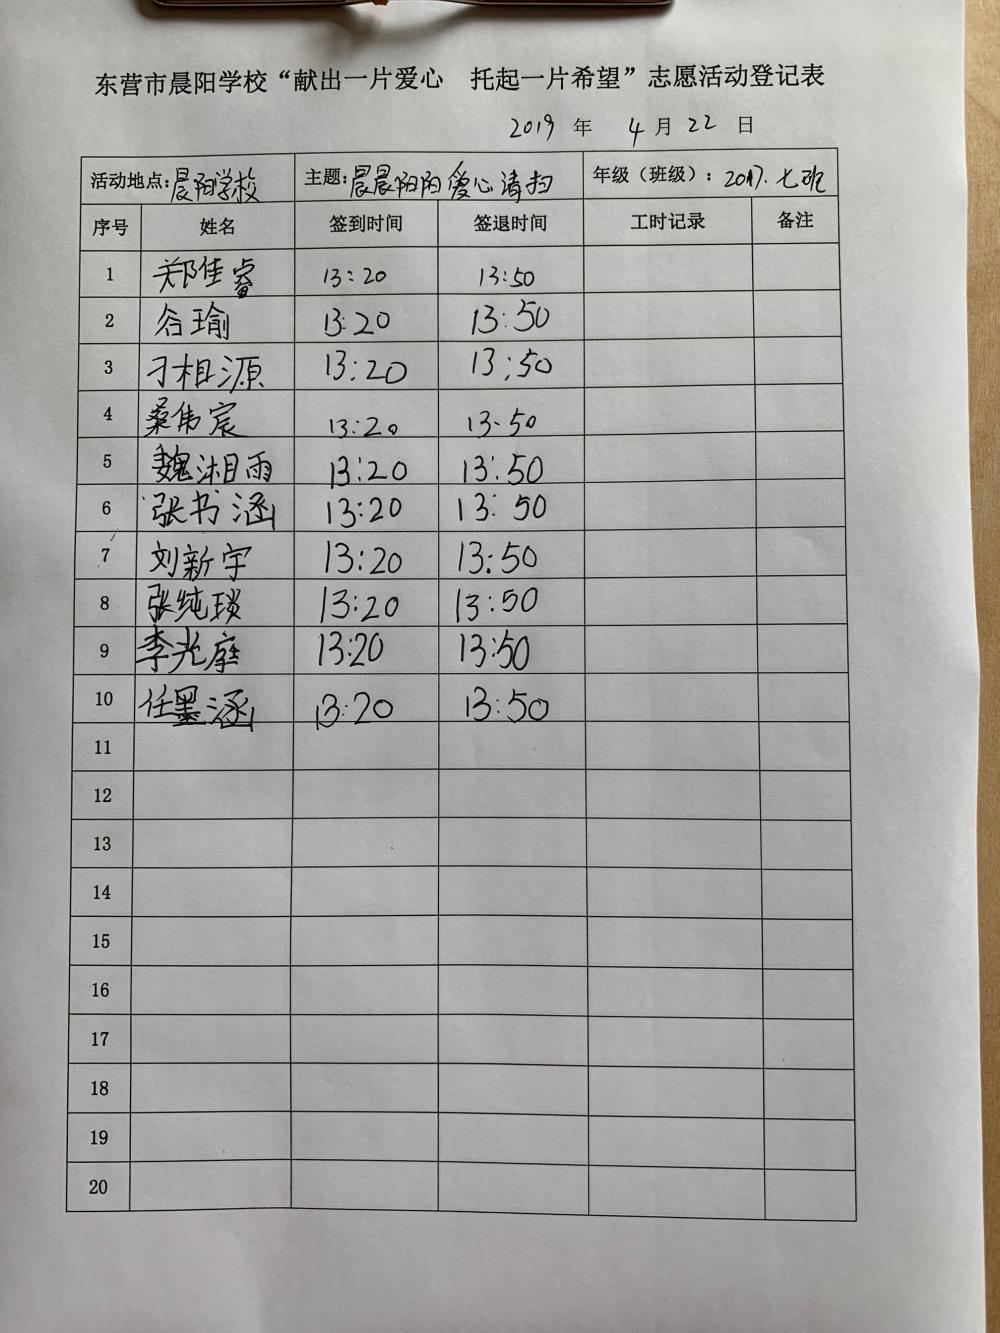 东营市晨阳学校“献出一片爱心 托起一片希望”志愿活动登记表
2019 年 4 月 22 日
活动地点:晨阳学校 主题:晨晨阳阳爱心清扫 年级（班级）:2017.七班
序号 姓名 签到时间 签退时间 工时记录 备注
1 郑佳睿 13:20 13:50
2 谷瑜 13:20 13:50
3 刁相源 13:20 13:50
4 桑伟宸 13:20 13:50
5 魏湘雨 13:20 13:50
6 张书涵 13:20 13:50
7 刘新宇 13:20 13:50
8 张纯琰 13:20 13:50
9 李光庭 13:20 13:50
10 任墨涵 13:20 13:50
11
12
13
14
15
16
17
18
19
20